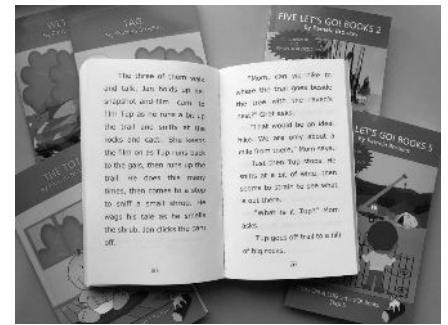 WET
TAG
FIVE LET'S GO! BOOKS 2
by Pamela Brookes
The three of them walk
and talk. Jan holds up her
snapshot-and-film cam to
film Tup as he runs a bit up
the trail and sniffs at the
rocks and cacti. She keeps
the film on as Tup runs back
to the gals, then runs up the
trail. He does this many
times, then comes to a stop
to sniff a small shrub. He
wags his tale as he smells
the shrub. Jan clicks the cam
off.
"Mom, can we hike to
where the trail goes beside
the tree with the raven's
nest?" Gret asks.
"That would be an ideal
hike. We are only about a
mile from there," Mom says.
Just then Tup stops. He
sniffs at a bit of wind, then
seems to strain to see what
is out there.
"What is it, Tup?" Mom
asks.
Tup goes off trail to a hill
of big rocks.
THE
LET'S GO! BOOKS 5
by Pamela Brookes